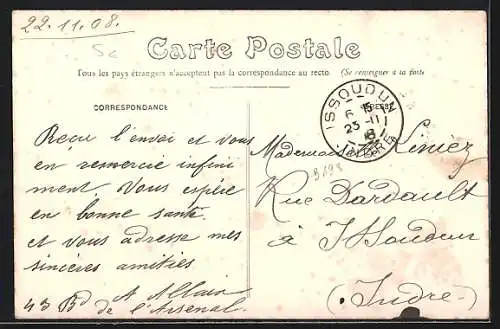 22.11.08.
5c
Carte Postale
Tous les pays étrangers n'acceptent pas la correspondance au recto (Se renseigner à la Poste
CORRESPONDANCE
ADRESSE
ISSOUDUN
6
23 -11
INDRE
Reçu l'envoi et vous
en remercie infini
ment. Vous espère
en bonne santé
et vous adresse mes
sincères amitiés
A Allain
43 Bd de l'Arsenal.
Mademoiselle Liniez
Rue Dardault
à Issoudun
(Indre)